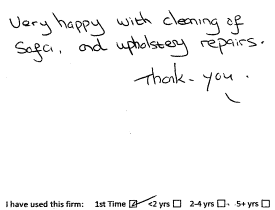 Very happy with cleaning of
Sofa, and upholstery repairs.
Thank-you.
I have used this firm: 1st Time ☑ <2 yrs ☐ 2-4 yrs ☐ 5+ yrs ☐